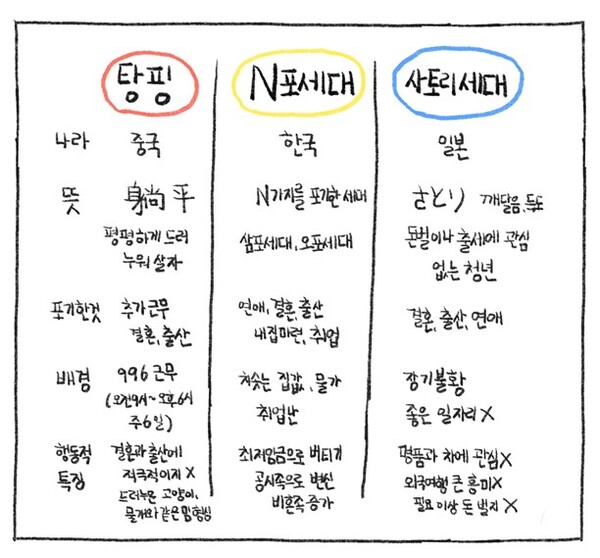 탕핑 N포세대 사토리세대
나라 중국 한국 일본
뜻 躺平 N가지를 포기한 세대 さとり 깨달음, 득도
평평하게 드러 누워 살자 삼포세대, 오포세대 돈벌이나 출세에 관심 없는 청년
포기한것 추가근무 결혼, 출산 연애, 결혼, 출산 내집마련, 취업 결혼, 출산, 연애
배경 996 근무 (오전9시~오후6시 주6일) 치솟는 집값, 물가 취업난 장기불황 좋은 일자리 X
행동적 특징 결혼과 출산에 적극적이지 X 드러누운 고양이, 물개와 같은 밈 형성 최저임금으로 버티기 공시족으로 변신 비혼족 증가 명품과 차에 관심 X 외국여행 큰 흥미 X 필요 이상 돈 벌지 X